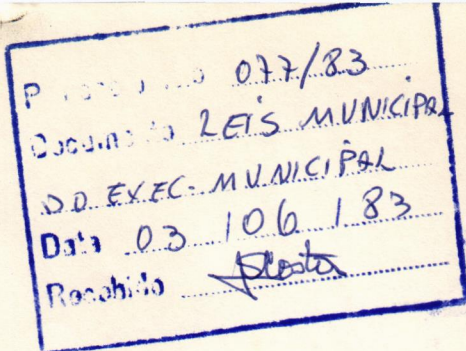 077/83
Documento LEIS MUNICIPAL
DO EXEC. MUNICIPAL
Data 03 / 06 / 83
Recebido